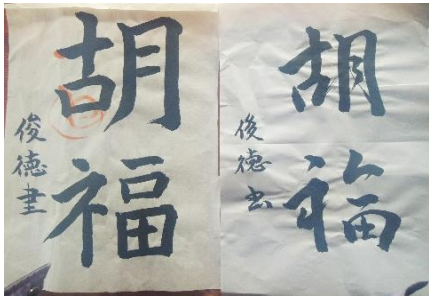 胡福
俊德書
胡福
俊德书